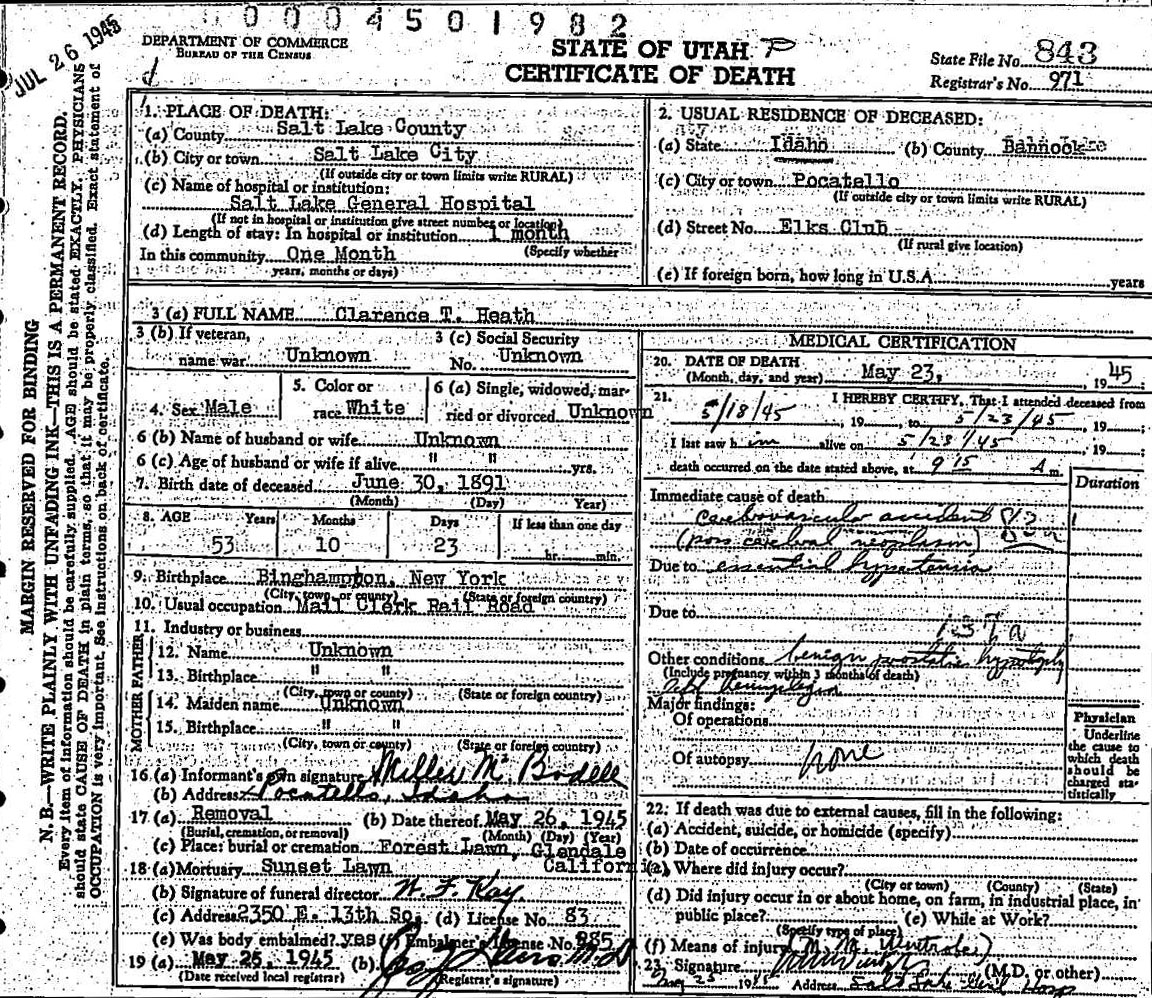 0004501982
JUL 26 1945
DEPARTMENT OF COMMERCE
BUREAU OF THE CENSUS
STATE OF UTAH
CERTIFICATE OF DEATH
State File No. 843
Registrar's No. 971
MARGIN RESERVED FOR BINDING
N. B.—WRITE PLAINLY WITH UNFADING INK—THIS IS A PERMANENT RECORD.
Every item of information should be carefully supplied. AGE should be stated EXACTLY. PHYSICIANS
should state CAUSE OF DEATH in plain terms, so that it may be properly classified. Exact statement of
OCCUPATION is very important. See instructions on back of certificate.
1. PLACE OF DEATH:
(a) County Salt Lake County
(b) City or town Salt Lake City
(If outside city or town limits write RURAL)
(c) Name of hospital or institution:
Salt Lake General Hospital
(If not in hospital or institution give street number or location)
(d) Length of stay: In hospital or institution 1 month
(Specify whether
In this community One Month
years, months or days)
2. USUAL RESIDENCE OF DECEASED:
(a) State Idaho (b) County Bannock
(c) City or town Pocatello
(If outside city or town limits write RURAL)
(d) Street No. Elks Club
(If rural give location)
(e) If foreign born, how long in U.S.A. years
3 (a) FULL NAME Clarence T. Heath
3 (b) If veteran,
name war Unknown
3 (c) Social Security
No. Unknown
4. Sex Male
5. Color or
race White
6 (a) Single, widowed, mar-
ried or divorced Unknown
6 (b) Name of husband or wife Unknown
6 (c) Age of husband or wife if alive " " yrs.
7. Birth date of deceased June 30, 1891
(Month) (Day) Year)
8. AGE Years Months Days If less than one day
53 10 23 hr. min.
9. Birthplace Binghampton, New York
(City, town, or county) (State or foreign country)
10. Usual occupation Mail Clerk Rail Road
11. Industry or business
FATHER
12. Name Unknown
13. Birthplace " "
(City, town or county) (State or foreign country)
MOTHER
14. Maiden name Unknown
15. Birthplace " "
(City, town or county) (State or foreign country)
16. (a) Informant's own signature Miller Mc Bodell
(b) Address Pocatello, Idaho
17 (a) Removal (b) Date thereof May 26, 1945
(Burial, cremation, or removal) (Month) (Day) (Year)
(c) Place: burial or cremation Forest Lawn, Glendale
California
18 (a) Mortuary Sunset Lawn
(b) Signature of funeral director W. F. Kay
(c) Address 2350 E. 13th So. (d) License No. 83
(e) Was body embalmed? yes (f) Embalmer's License No. 985
19 (a) May 25, 1945 (b)
(Date received local registrar) (Registrar's signature)
MEDICAL CERTIFICATION
20. DATE OF DEATH
(Month, day, and year) May 23, , 19 45
21. I HEREBY CERTIFY, That I attended deceased from
5/18/45 , 19 , to 5/23/45 , 19 ;
I last saw h im alive on 5/23/45 , 19 ;
death occurred on the date stated above, at 9 15 A m.
Duration
Immediate cause of death
cerebrovascular accident
(poss cerebral neoplasm) 83a
Due to essential hypertension
Due to
137a
Other conditions benign prostatic hypertrophy
(Include pregnancy within 3 months of death)
left hemiplegia
Major findings:
Of operations
Of autopsy none
Physician
Underline
the cause to
which death
should be
charged sta-
tistically
22. If death was due to external causes, fill in the following:
(a) Accident, suicide, or homicide (specify)
(b) Date of occurrence
(c) Where did injury occur?
(City or town) (County) (State)
(d) Did injury occur in or about home, on farm, in industrial place, in
public place? (e) While at Work?
(Specify type of place)
(f) Means of injury (M. M. Wintrobe)
23. Signature (M.D. or other)
1945 Address Salt Lake Genl Hosp